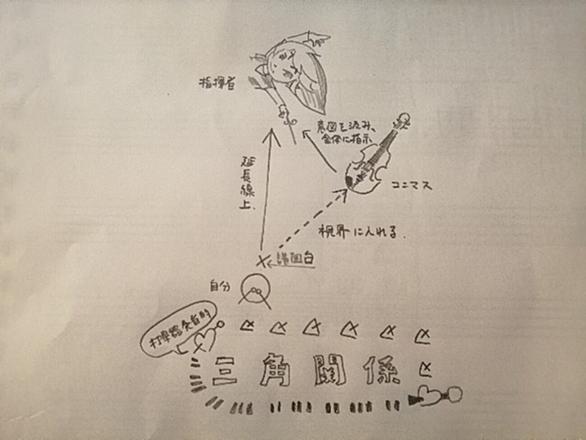 指揮者
意図を汲み、
全体に指示
コンマス
延長線上
視界に入れる.
譜面台
自分
打楽器奏者的
三角関係